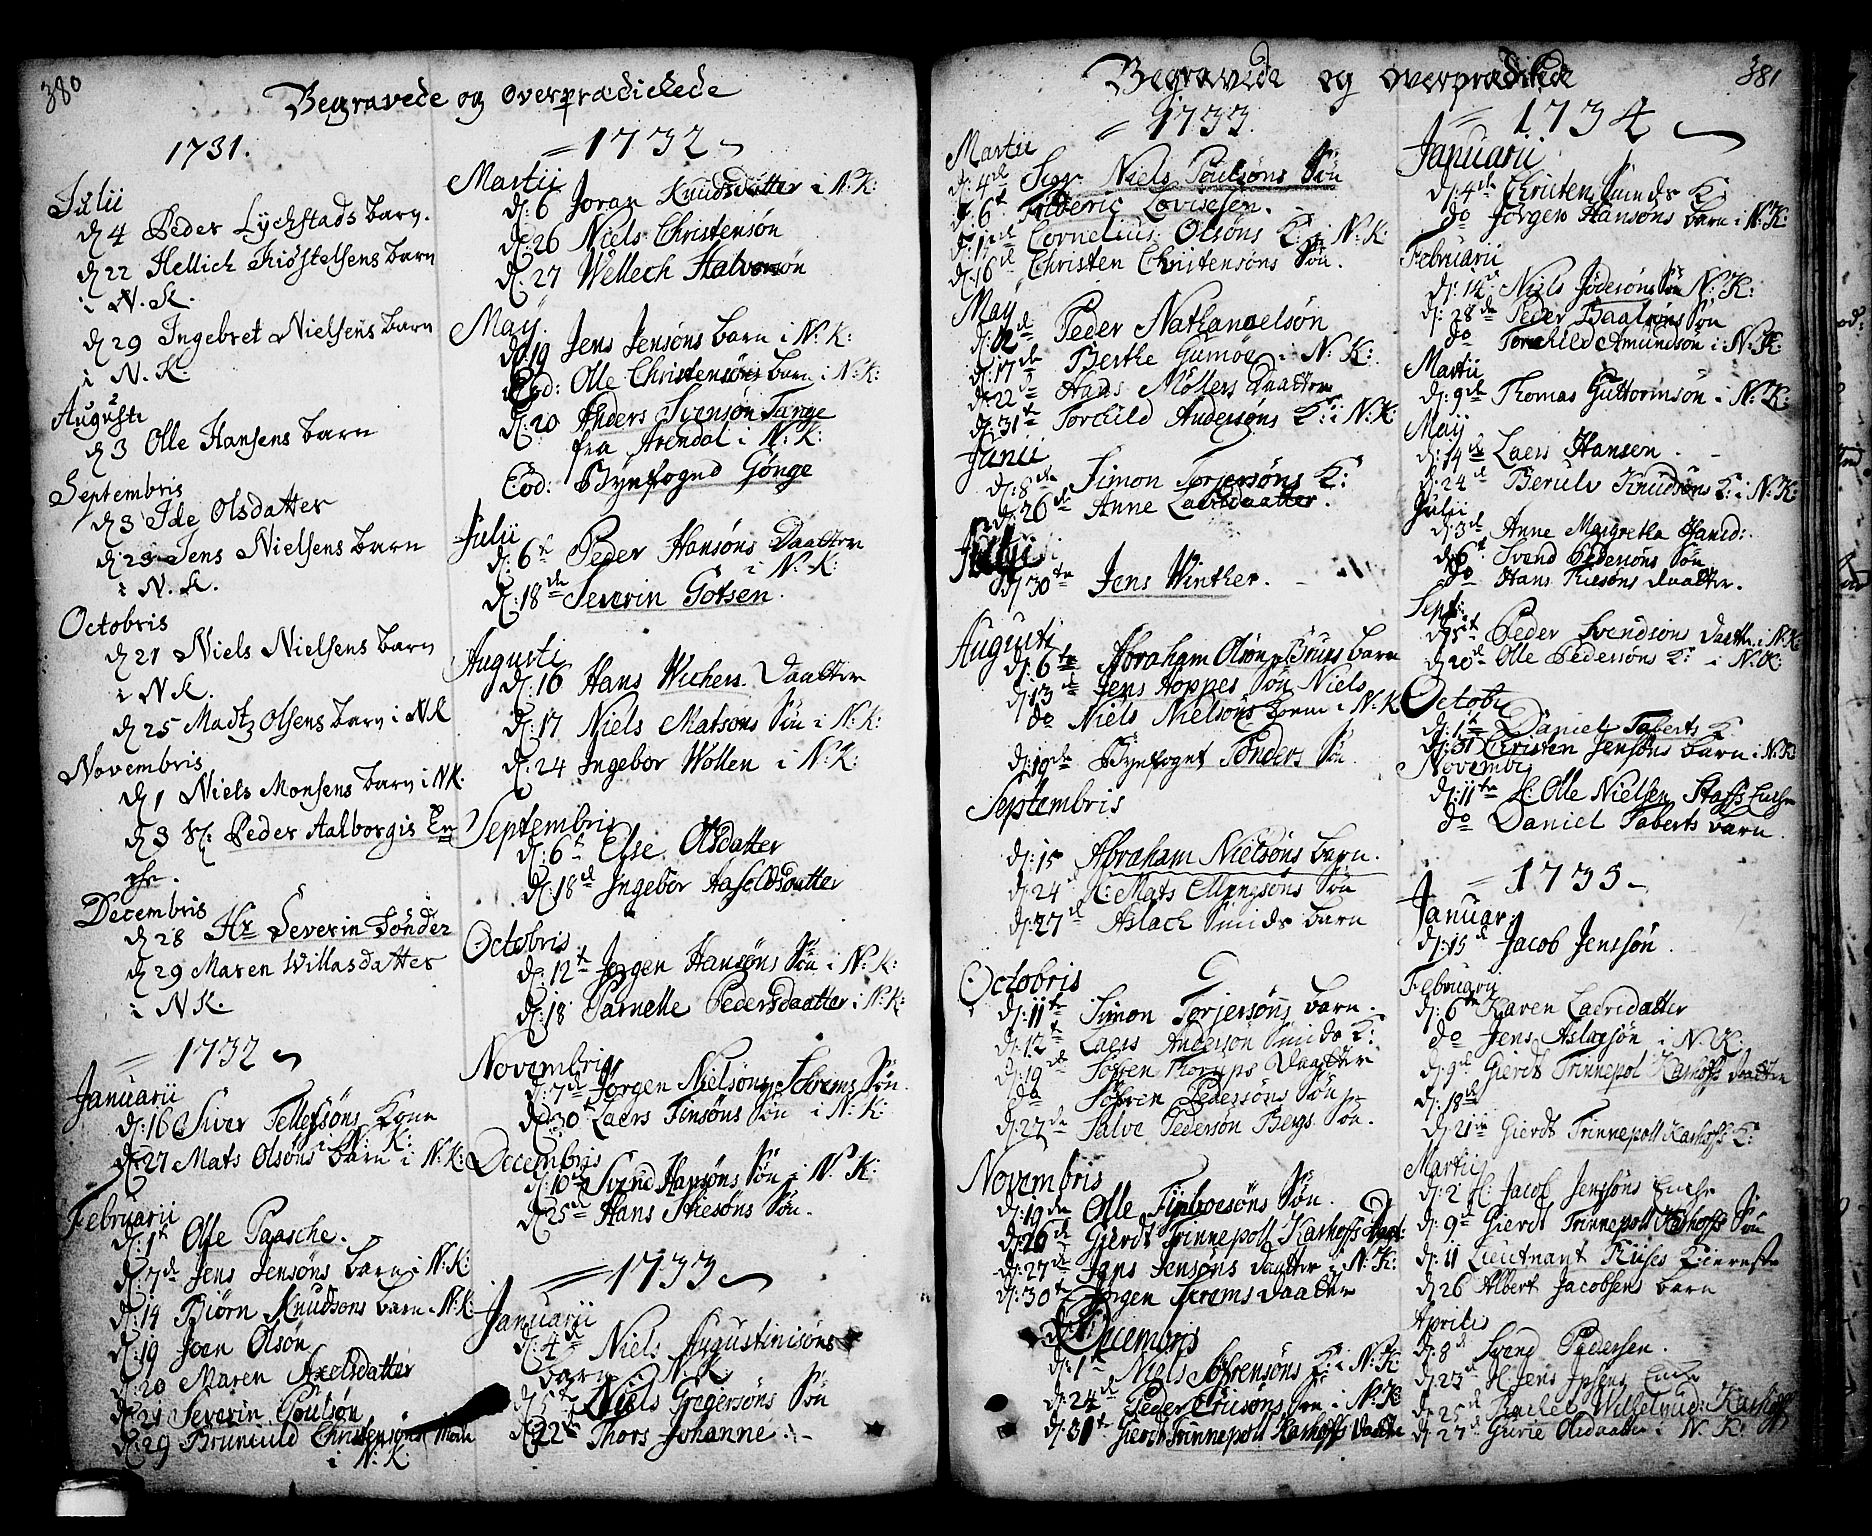 380
Begravede og Overprædickede
1731.
Julii
d 4 Peder Lychstads barn.
d 22 Hellich Kiøstelsens barn
i N. K.
d 29 Ingebret Nielsens barn
i N. K
Augusti
d 3 Olle Hansens barn
Septembris
d 3 Ide Olsdatter
d: 23 Jens Nielsens barn
i N. K.
Octobris
d 21 Niels Nielsens barn
i N K.
d 25 Madtz Olsens barn i N K
Novembris
d 1 Niels Monsens barn i N K.
d 3 Sl: Peder Aalborgis En
che.
Decembris
d 28 Hr Severin Tønder
d 29 Maren Willasdatter
i N K.
1732
Januarii
d: 16 Siver Tellefsøns Kone
i N: K:
d: 27 Mats Olsøns barn i N: K:
Februarii
d: 1t Olle Paasche.
d: 7de Jens Jensøns barn i N: K:
d: 14 Biørn Knudsøns barn i N: K:
d: 19 Joen Olsøn
d: 20 Maren Axelsdatter
d: 21 Severin Poulsøn
d: 29 Brunuld Christensøns Moder
i N: K:
1732
Martii
d: 6 Joran Knudsdatter i N: K:
d: 26 Niels Christensøn
d: 27 Wellech Halvorsøn
May.
d: 19 Jens Jensøns barn i N: K:
Eod: Olle Christensøns barn i N: K:
d: 20 Anders Svensøn Tange
fra Arendal i N: K:
Eod: Byefogud Gønge
Julii
d: 6t Peder Hansøns Daatter
i N: K:
d: 18de Severin Gotsen.
Augusti
d: 16 Hans Wichers Daatter
d: 17 Niels Matsøns Søn i N: K:
d: 24 Ingebor Wollen i N: K:
Septembris
d: 6t Else Olsdatter
d: 18d Ingebor Hafeldsdaatter
Octobris
d: 12t Jørgen Hansøns Søn i N: K:
d: 18 Parnelle Pedersdaatter i N: K:
Novembris
d: 7de Jørgen Nielsøn Schrøms Søn.
d: 30t Laers Finsøns Søn i N: K:
Decembris
d: 10de Svend Hansøns Søn i N: K:
d: 25de Hans Stiesøns Søn.
1733
Januarii
d: 4de Niels Augustinisøns
barn i N: K:
d: 5t Niels Gregersøns Søn
d: 22de Thors Johanne
381
Begravede og overprædikede
1733.
Martii
d: 4de Sigr Niels Poulsøns Søn
d: 6t Frideric Lovisesen.
d: Cornelius Olsøns K: i N: K:
d: 16de Christen Christensøns Søn.
May
d: 12de Peder Nathanaelsøn
d: 17de Berthe Gumøe i N: K:
d: 22de Hans Møllers Daatter
d: 31te Torchild Andersøns K: i N: K:
Junii
d: 8de Simon Torjersøns K:
d: 26de Anne Laersdaatter.
Julii
d: 30te Jens Winther.
Augusti
d: 6te Abraham Olsøn Bruns barn
d: 13de Jens Hoppes Søn Niels
do Niels Nielsøns barn i N: K
d: 19de Byefogt Tønders Søn
Septembris
d: 15 Abraham Nielsøns barn.
d: 24de Mats Søn
d: 27de Aslach Smids barn
Octobris
d: 11te Simon Torjersøns barn
d: 12t Laers Andersøn Smids K:
d: 19de Søfren Thorups Daatter
do Søfren Pedersøns Søn
d: 27de Salve Pedersøn Bergs Søn.
Novembris
d: 19de Olle Søn.
d: 26de Gierdt Trinnepoll Karhofs Daat:
d: 27de Jans Jensøns Daatter i N: K:
d: 30t Jørgen Schrøms Daatter
Decembris
d: 1t Niels Søfrensøns K: i N: K:
d: 24de Peder Ericsøns Søn i N: K
d: 31t Gierdt Trinnepoll Karhofs Daatter
1734
Januarii
d: 4de Christen Smids K:
do Jørgen Hansøns barn i N: K:
Februarii
d: Niels Søn N: K:
d: 28de Peder Baalsøns Søn
do Torchild Amundsøn i N: K:
Martii
d: 9de Thomas Guttormsøn i N: K:
May
d: 14de Laers Hansen.
d: 24de Berulv Knudsøns K: i N: K:
Julii
d: 3de Anne Margretha Hansd:
d: 6t Svend Pedersøns Søn
do Hans Stiesøns daatter.
Sept:
d: 5t Peder Svendsøns daatter i N: K:
d: 20de Olle Pedersøns K: i N: K:
Octobr
d: 1t Daniel Taberts K
d: 31 Christen Jensøns barn i N: K:
Novembr
d: 11te S: Olle Nielsen Staffs Enche
do Daniel Taberts barn.
1735
Januar:
d: 15de Jacob Jenssøn.
Februarii
d: 6te Karen Laersdatter
do Jens Aslagsøn i N: K:
d: 9de Gierdt Trinnepol Karhoffs daatter
d: 18de
d: 21de Gierdt Trinnepoll Karhoffs K:
Martii
d: 2 S: Jacob Jenssøns Enche
d: 9de Gierdt Trinnepoll Karhoffs Søn
d: 11 Lieutnant Ruses Tierneste
d 26 Albert Jacobsens barn
Aprilis
d: 8de Svend Pedersen.
d: 23de S: Jens Ipsens Enche
d: 25de Rachel Willelmsd: Karhoff
d: 27de Gurie Olsdaatter i N: K: